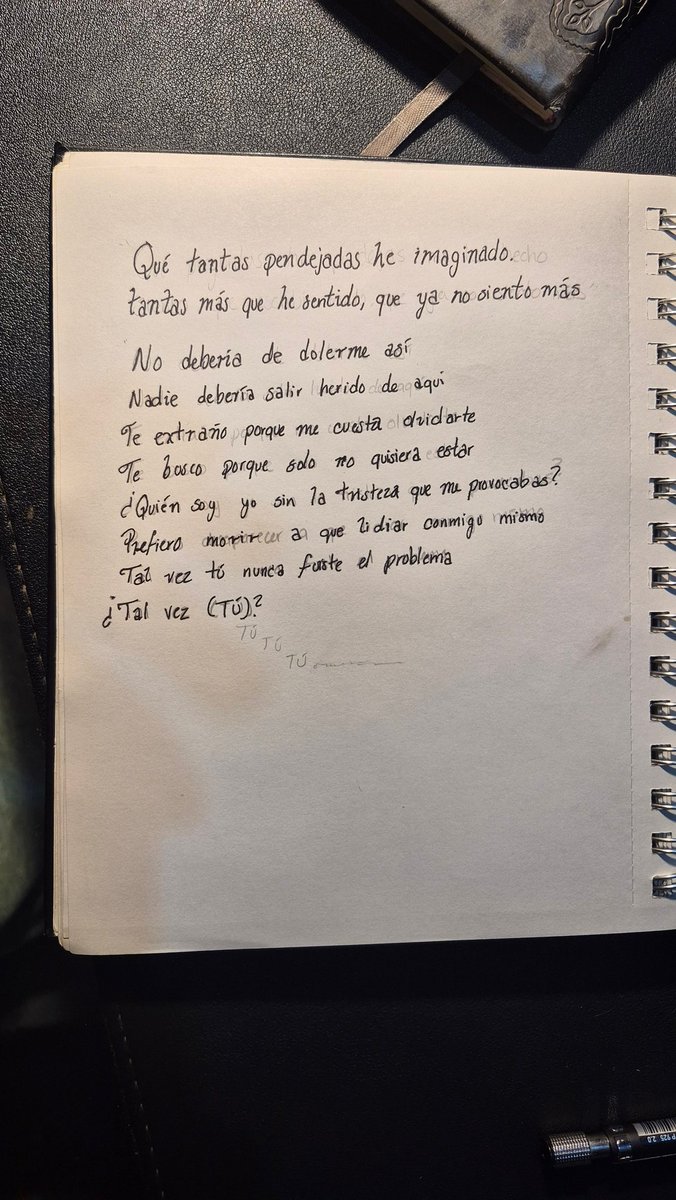 Qué tantas pendejadas he imaginado.
tantas más que he sentido, que ya no siento más
No debería de dolerme así
Nadie debería salir herido de aquí
Te extraño porque me cuesta olvidarte
Te busco porque solo no quisiera estar
¿Quién soy yo sin la tristeza que me provocabas?
Prefiero morir a que lidiar conmigo mismo
Tal vez tú nunca fuiste el problema
¿Tal vez (TÚ)?
TÚ
TÚ
TÚ
P 925 2.0